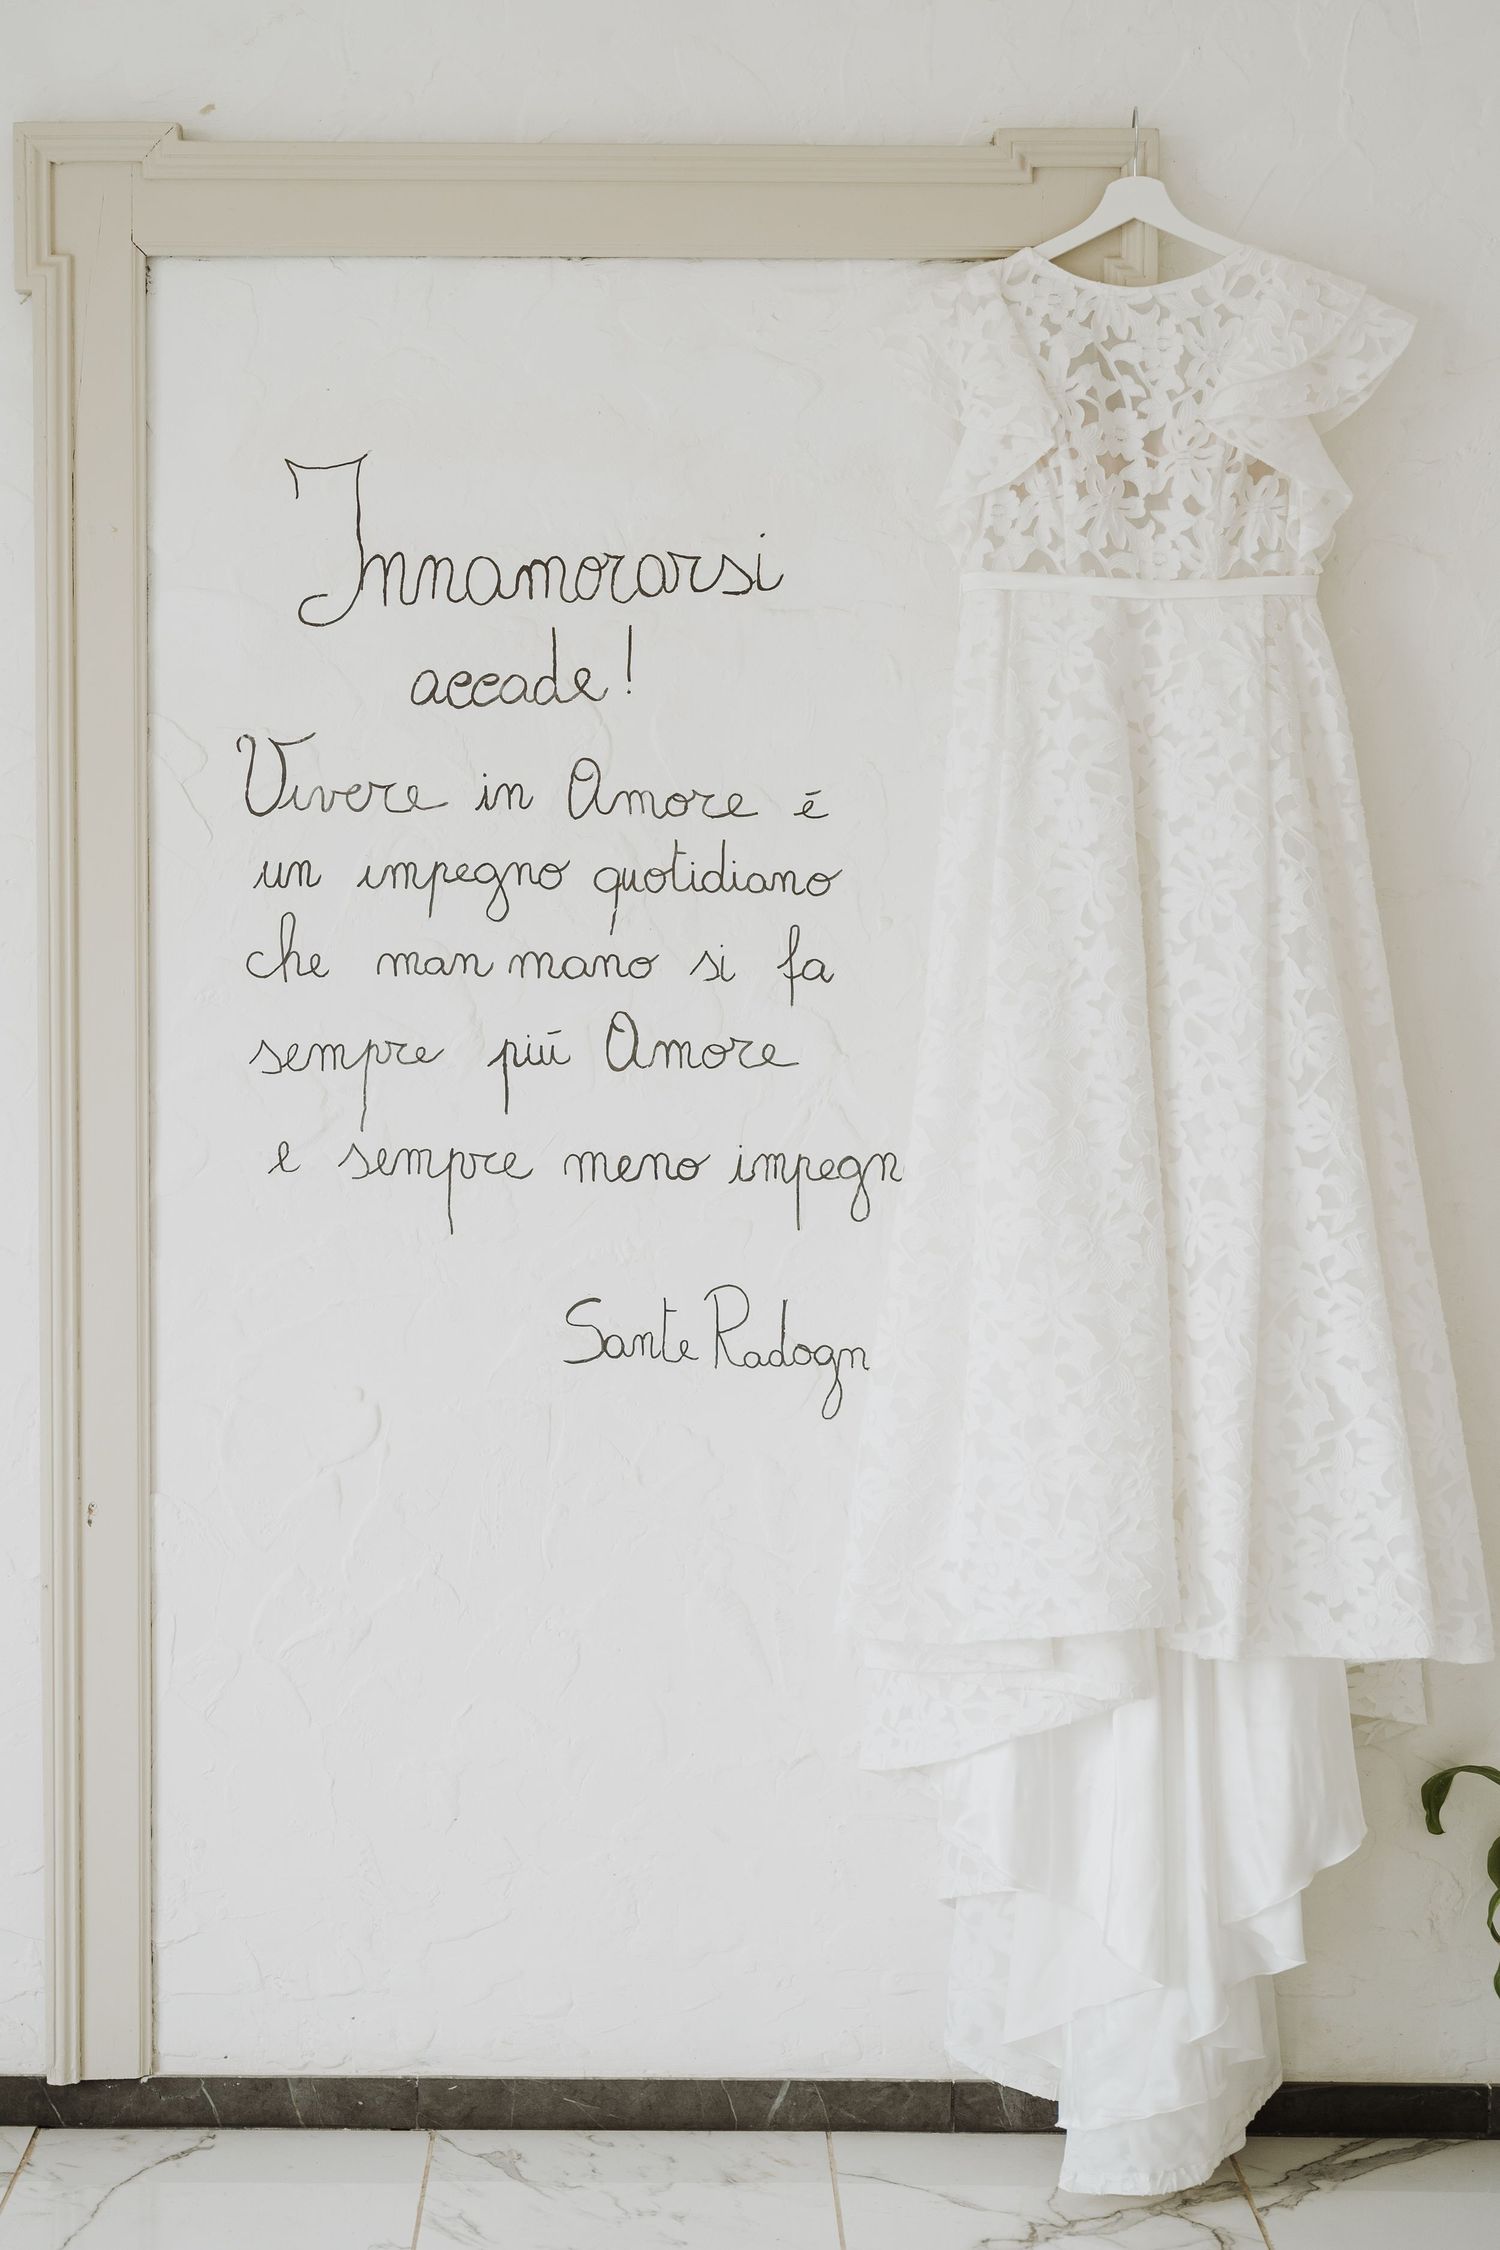 Innamorarsi
accade!
Vivere in Amore é
un impegno quotidiano
che man mano si fa
sempre più Amore
e sempre meno impegn
Sante Radogn